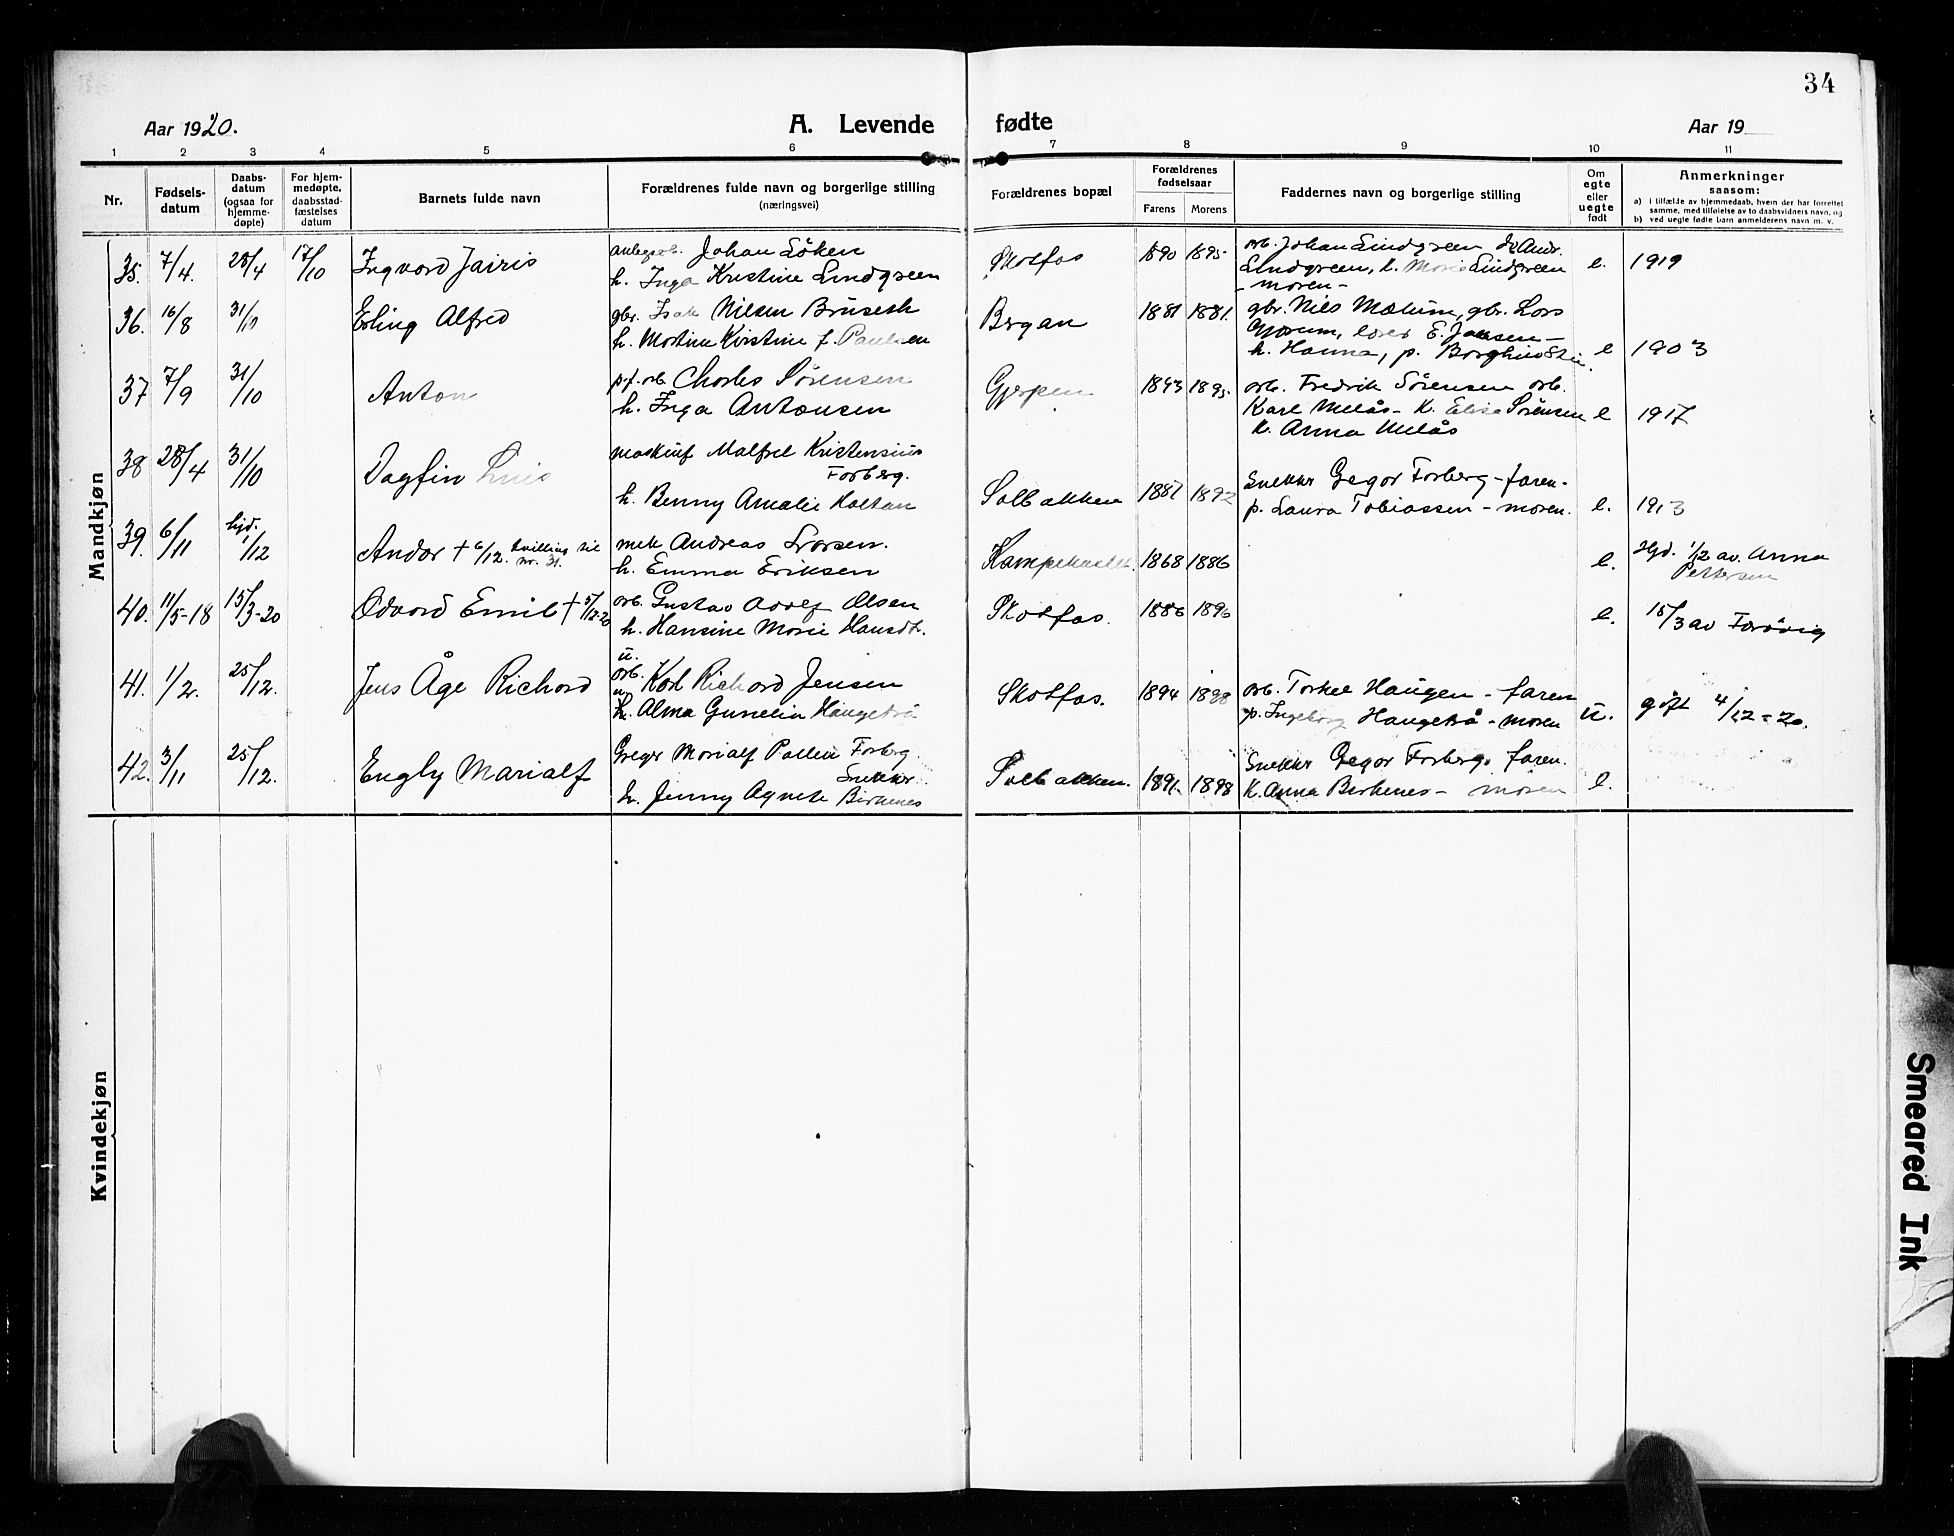 34
Aar 1920.
A. Levende fødte
Aar 19
1 2 3 4 5 6 7 8 9 10 11
Nr.
Fødsels-
datum
Daabs-
datum
(ogsaa for
hjemme-
døpte)
For hjem-
medøpte,
daabsstad-
fæstelses
datum
Barnets fulde navn
Forældrenes fulde navn og borgerlige stilling
(næringsvei)
Forældrenes bopæl
Forældrenes
fødselsaar
Farens Morens
Faddernes navn og borgerlige stilling
Om
egte
eller
uegte
født
Anmerkninger
saasom:
a) i tilfælde av hjemmedaab, hvem der har forrettet
samme, med tilføielse av to daabsvidners navn, og
b) ved uegte fødte barn anmelderens navn m. v.
Mandkjøn
35. 7/4. 25/4 17/10 Ingvord Jairis
Johan Löken
h. Inga Kristine Lindgreen
Skotfos 1890 1895
arb. Johan Lindgreen
Lindgreen, k. Marie Lindgreen
- moren -
e. 1919
36. 16/8 31/10 Erling Alfred
gbr. Isak Nilsen Bruseth
h. Martine Kirstine f. Paulsen
Bergan 1881 1881.
gbr. Nils Mælum, gbr. Lars
Gjærum, lærer E. Jansen -
h. Hanna, p. Borghild
e 1903
37 7/9 31/10 Anton
p.f. arb. Charles Sørensen
h. Inga Antonsen
Gjerpen 1893 1895
arb. Fredrik Sörensen arb.
Karl Melås - k. Elise Sörensen
k. Anna Melås
e 1917
38 28/4 31/10 Dagfin
maskinf Malfred Kristensius
Forberg.
h. Benny Amalie Holtan
Solbakken 1887 1892
Snekker Gregor Forberg - faren -
p. Laura Tobiassen - moren.
e. 1913
39. 6/11 hjd. 1/12 Andor + 6/12. tvilling til
nr. 31.
mek Andreas Larsen.
h. Emma Eriksen
1868 1886
e. Hjd. 1/12 av. Anna
Pettersen
40. 11/5-18 15/3-20 Odvard Emil + 5/12-20
arb. Gustav Adolf Olsen
h. Hansine Marie Hansdt.
Skotfos. 1886 1896
e. 15/3 av
41. 1/2. 25/12. Jens Åge Richard
u.
arb. Karl Richard Jensen
h. Alma Gunelia Haugeträ
Skotfos. 1894 1898
arb. Torkel Haugen - faren
p. Ingeborg Haugeträ - moren
u. gift 4/12-20.
42. 3/11 25/12. Engly Marialf
Greger Marialf Pallin Forberg
Snekker.
h. Jenny Agnete Birkenes
Solbakken. 1891 1898
Snekker Gregor Forberg. faren.
k. Anna Birkenes - moren
e.
Kvindekjøn
Smeared Ink